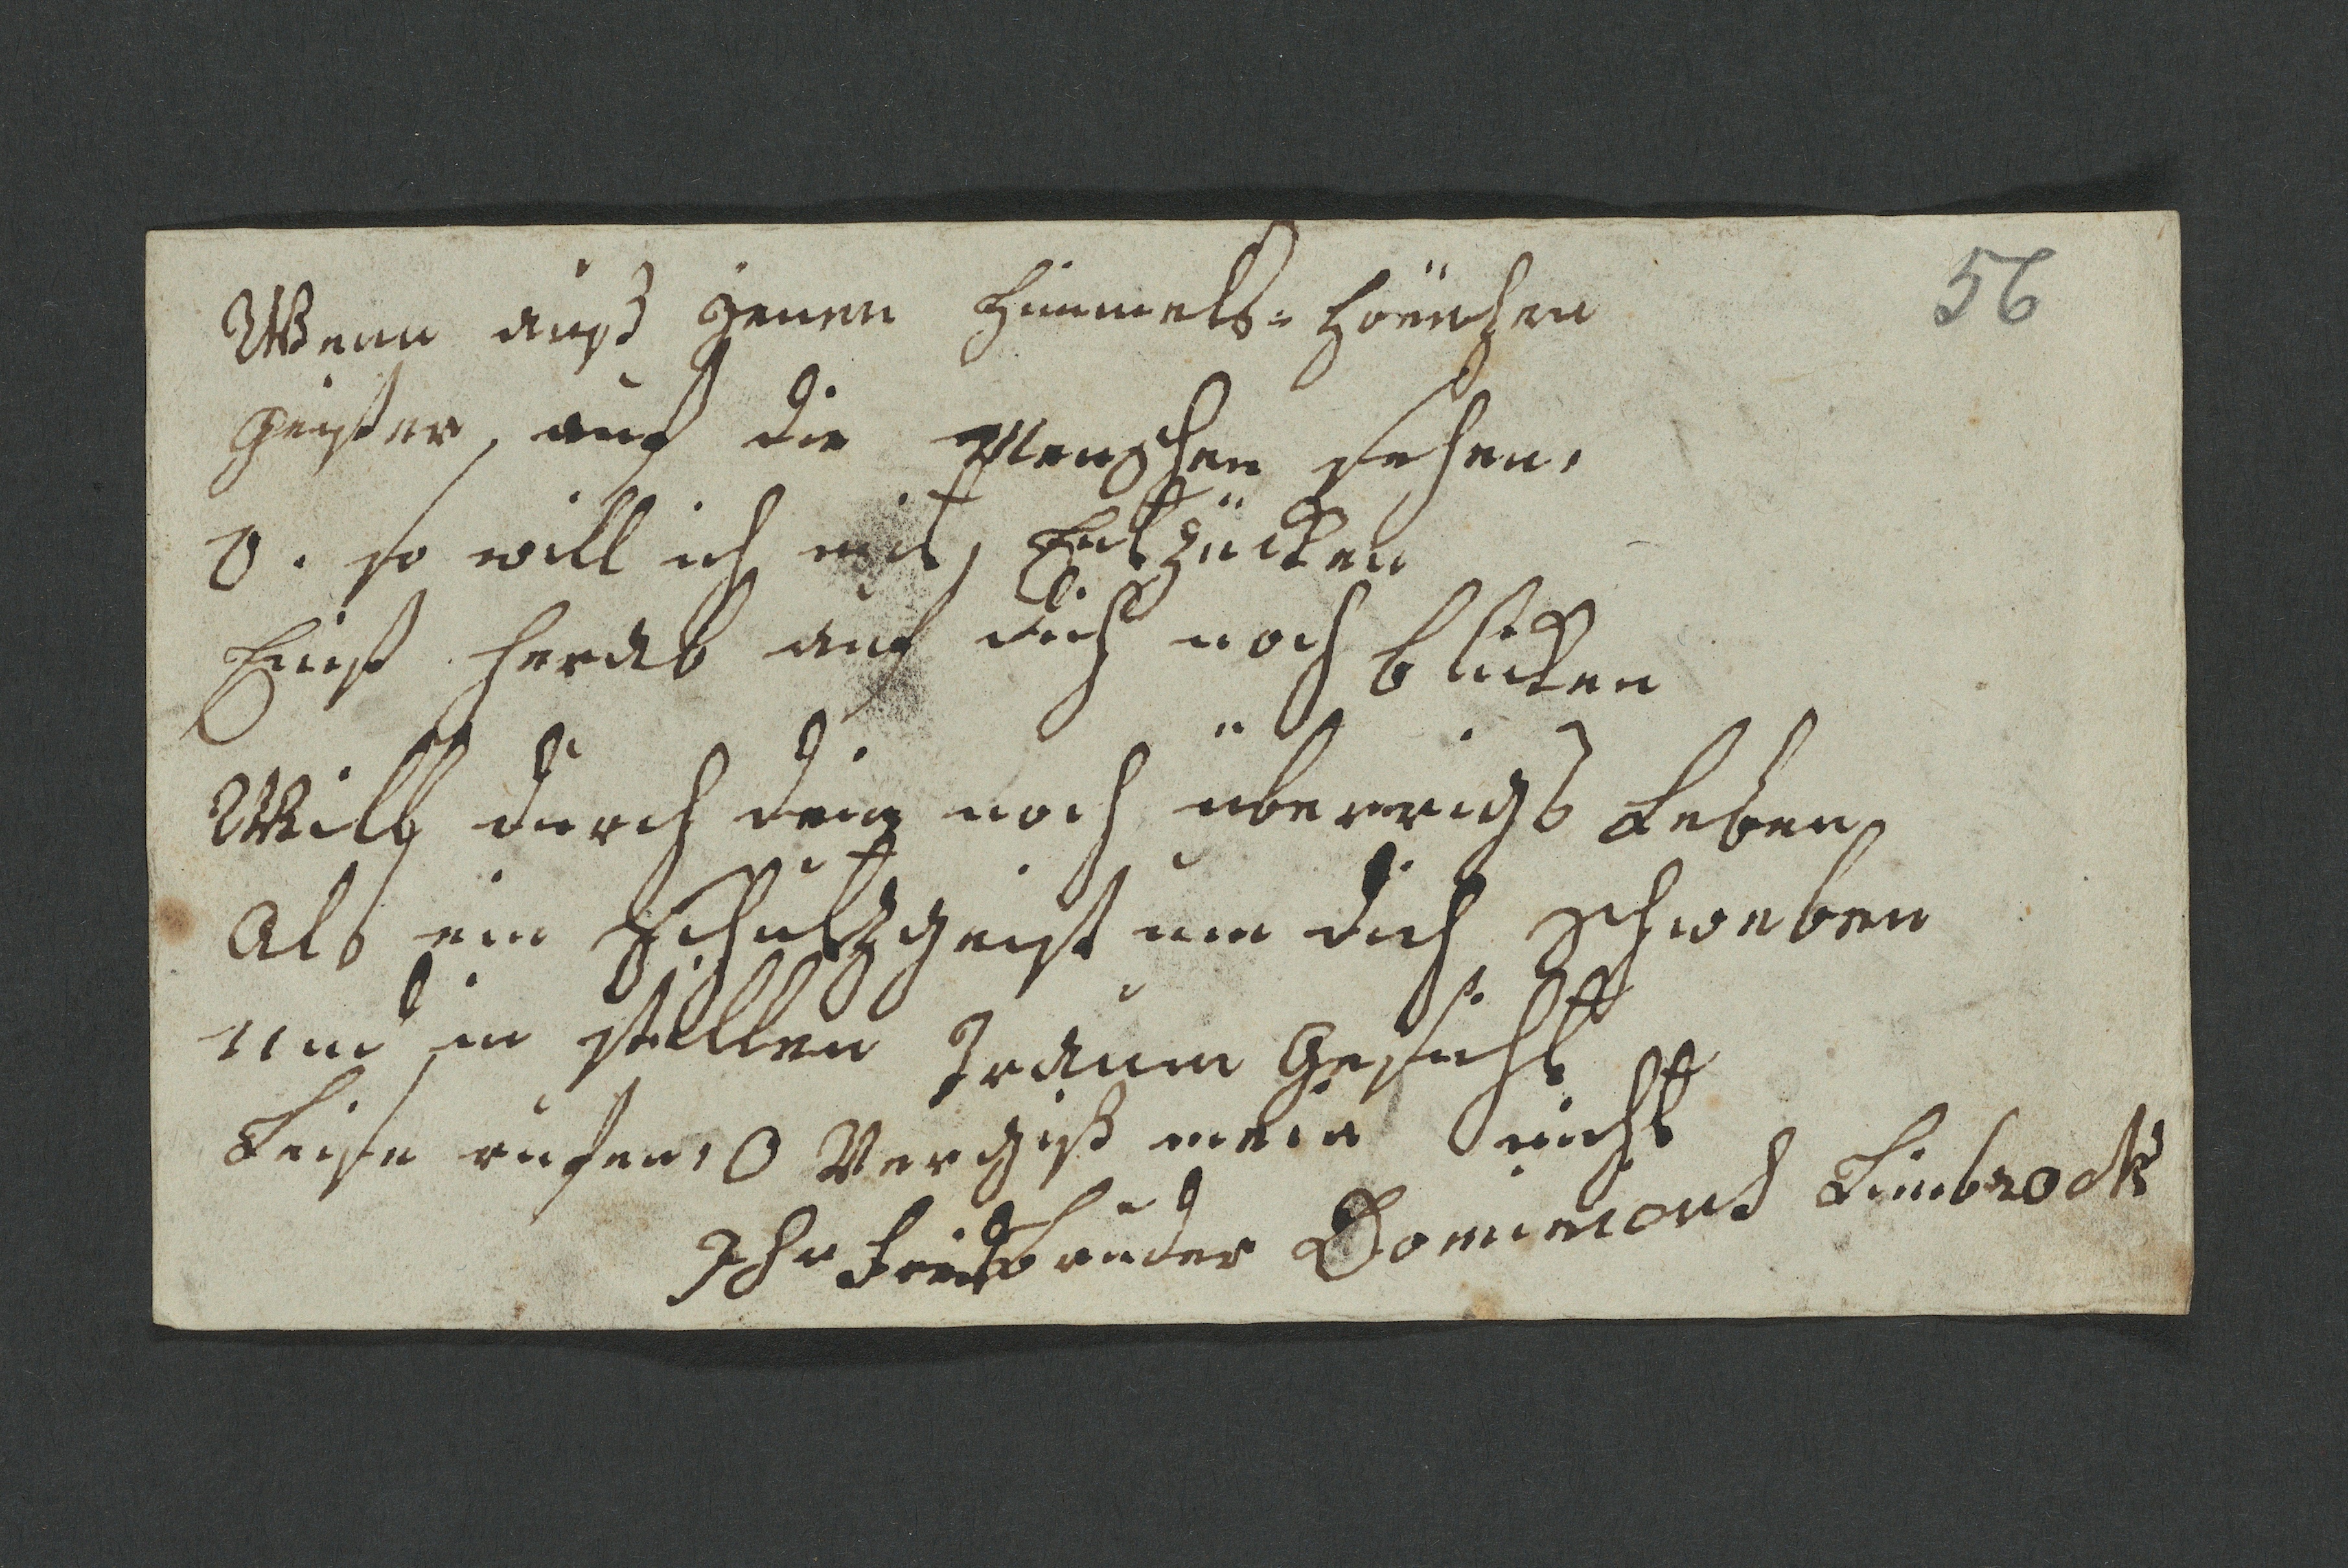 56
Wenn auß jenen Himmels-Höhen
Geister, auf die Menschen sehen,
O. so will ich mit, Entzücken
Einst herab auf dich noch blicken
Will durch dein noch überrigs Leben
Als ein Schutzgeist um dich schweben
Und in stillen Traum Gesicht
Leise rufen, O Vergiß mein nicht
Ihr bruder Limbrock